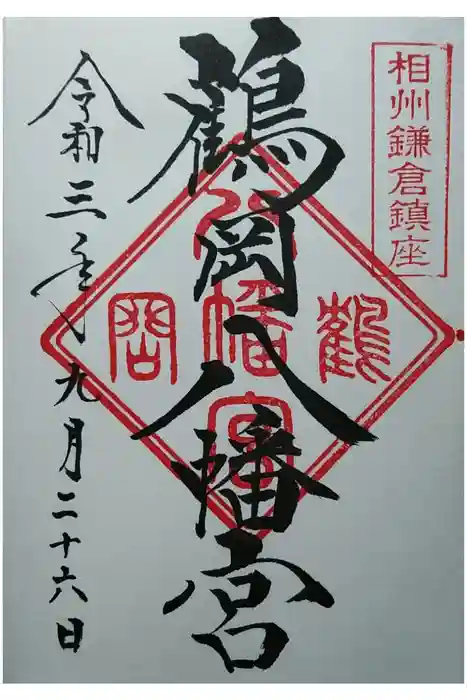 相州鎌倉鎮座
鶴岡八幡宮
鶴
岡
八幡宮
令和三年九月二十六日